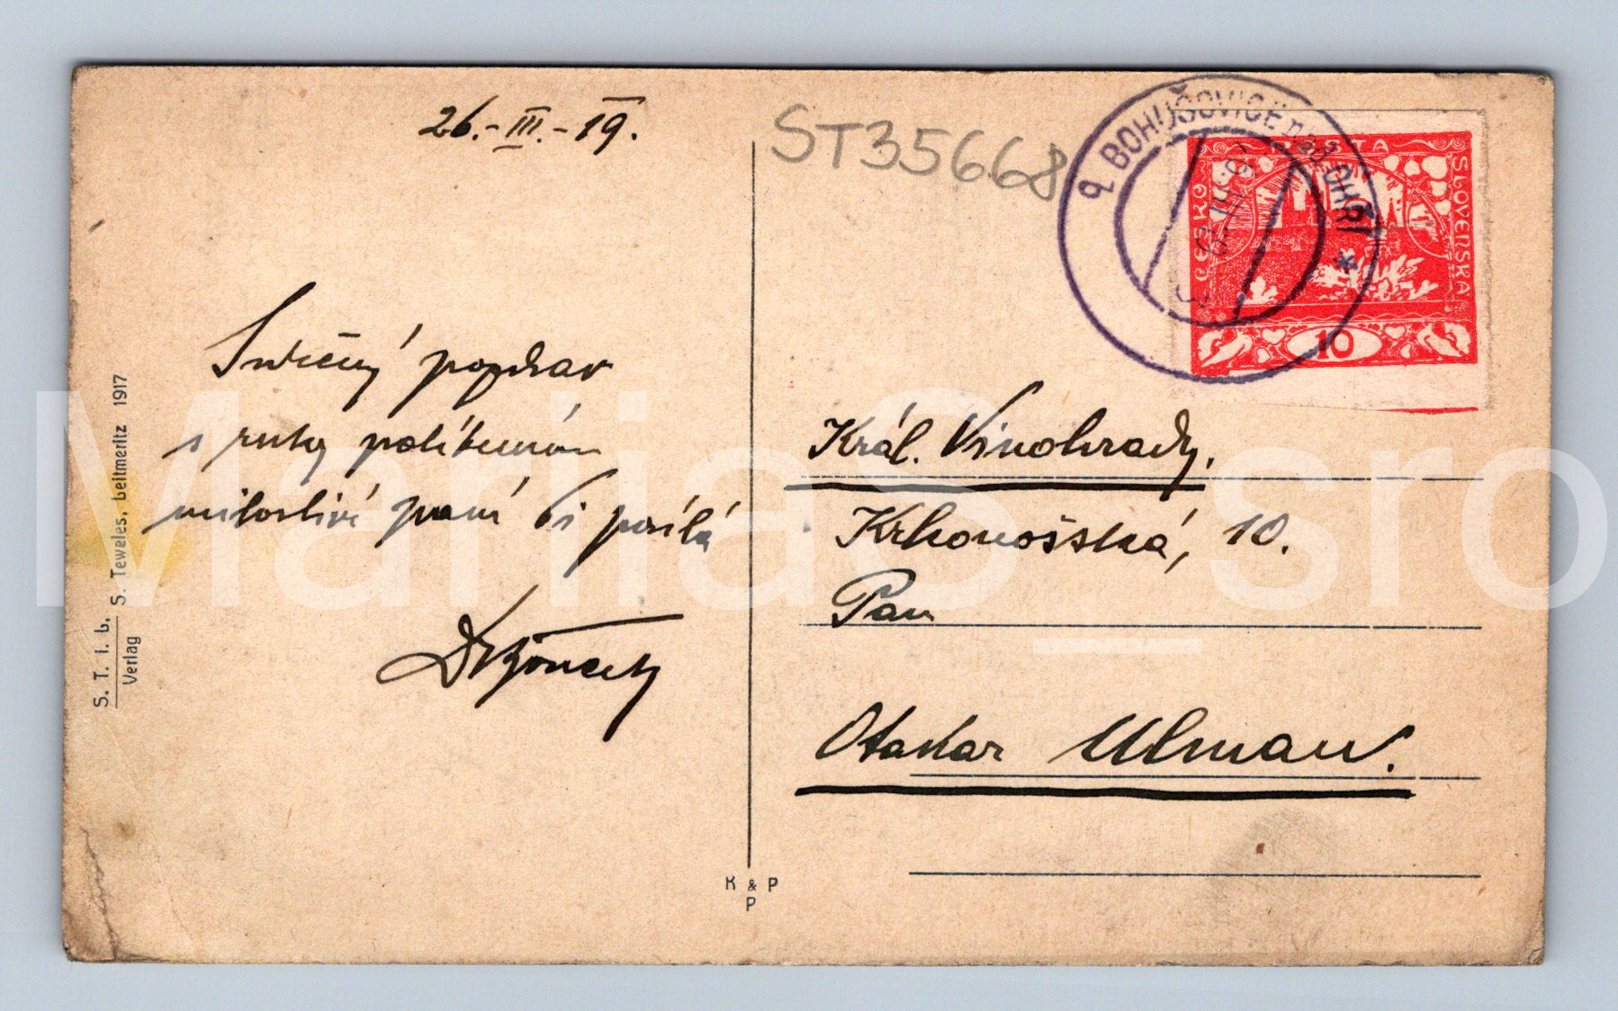 26.-III.-19.
ST35668
BOHUŠOVICE nad OHŘÍ *
ČESKO
SLOVENSKÁ
POŠTA
10
Srdečný pozdrav
s ruky políbením
milostivé paní Ti posílá
Král. Vinohrady.
Krkonošská, 10.
Pan
Otakar Ulman.
S. T. i. b. S. Teweles, Leitmeritz 1917
Verlag
K & P
P
MariaS_sro